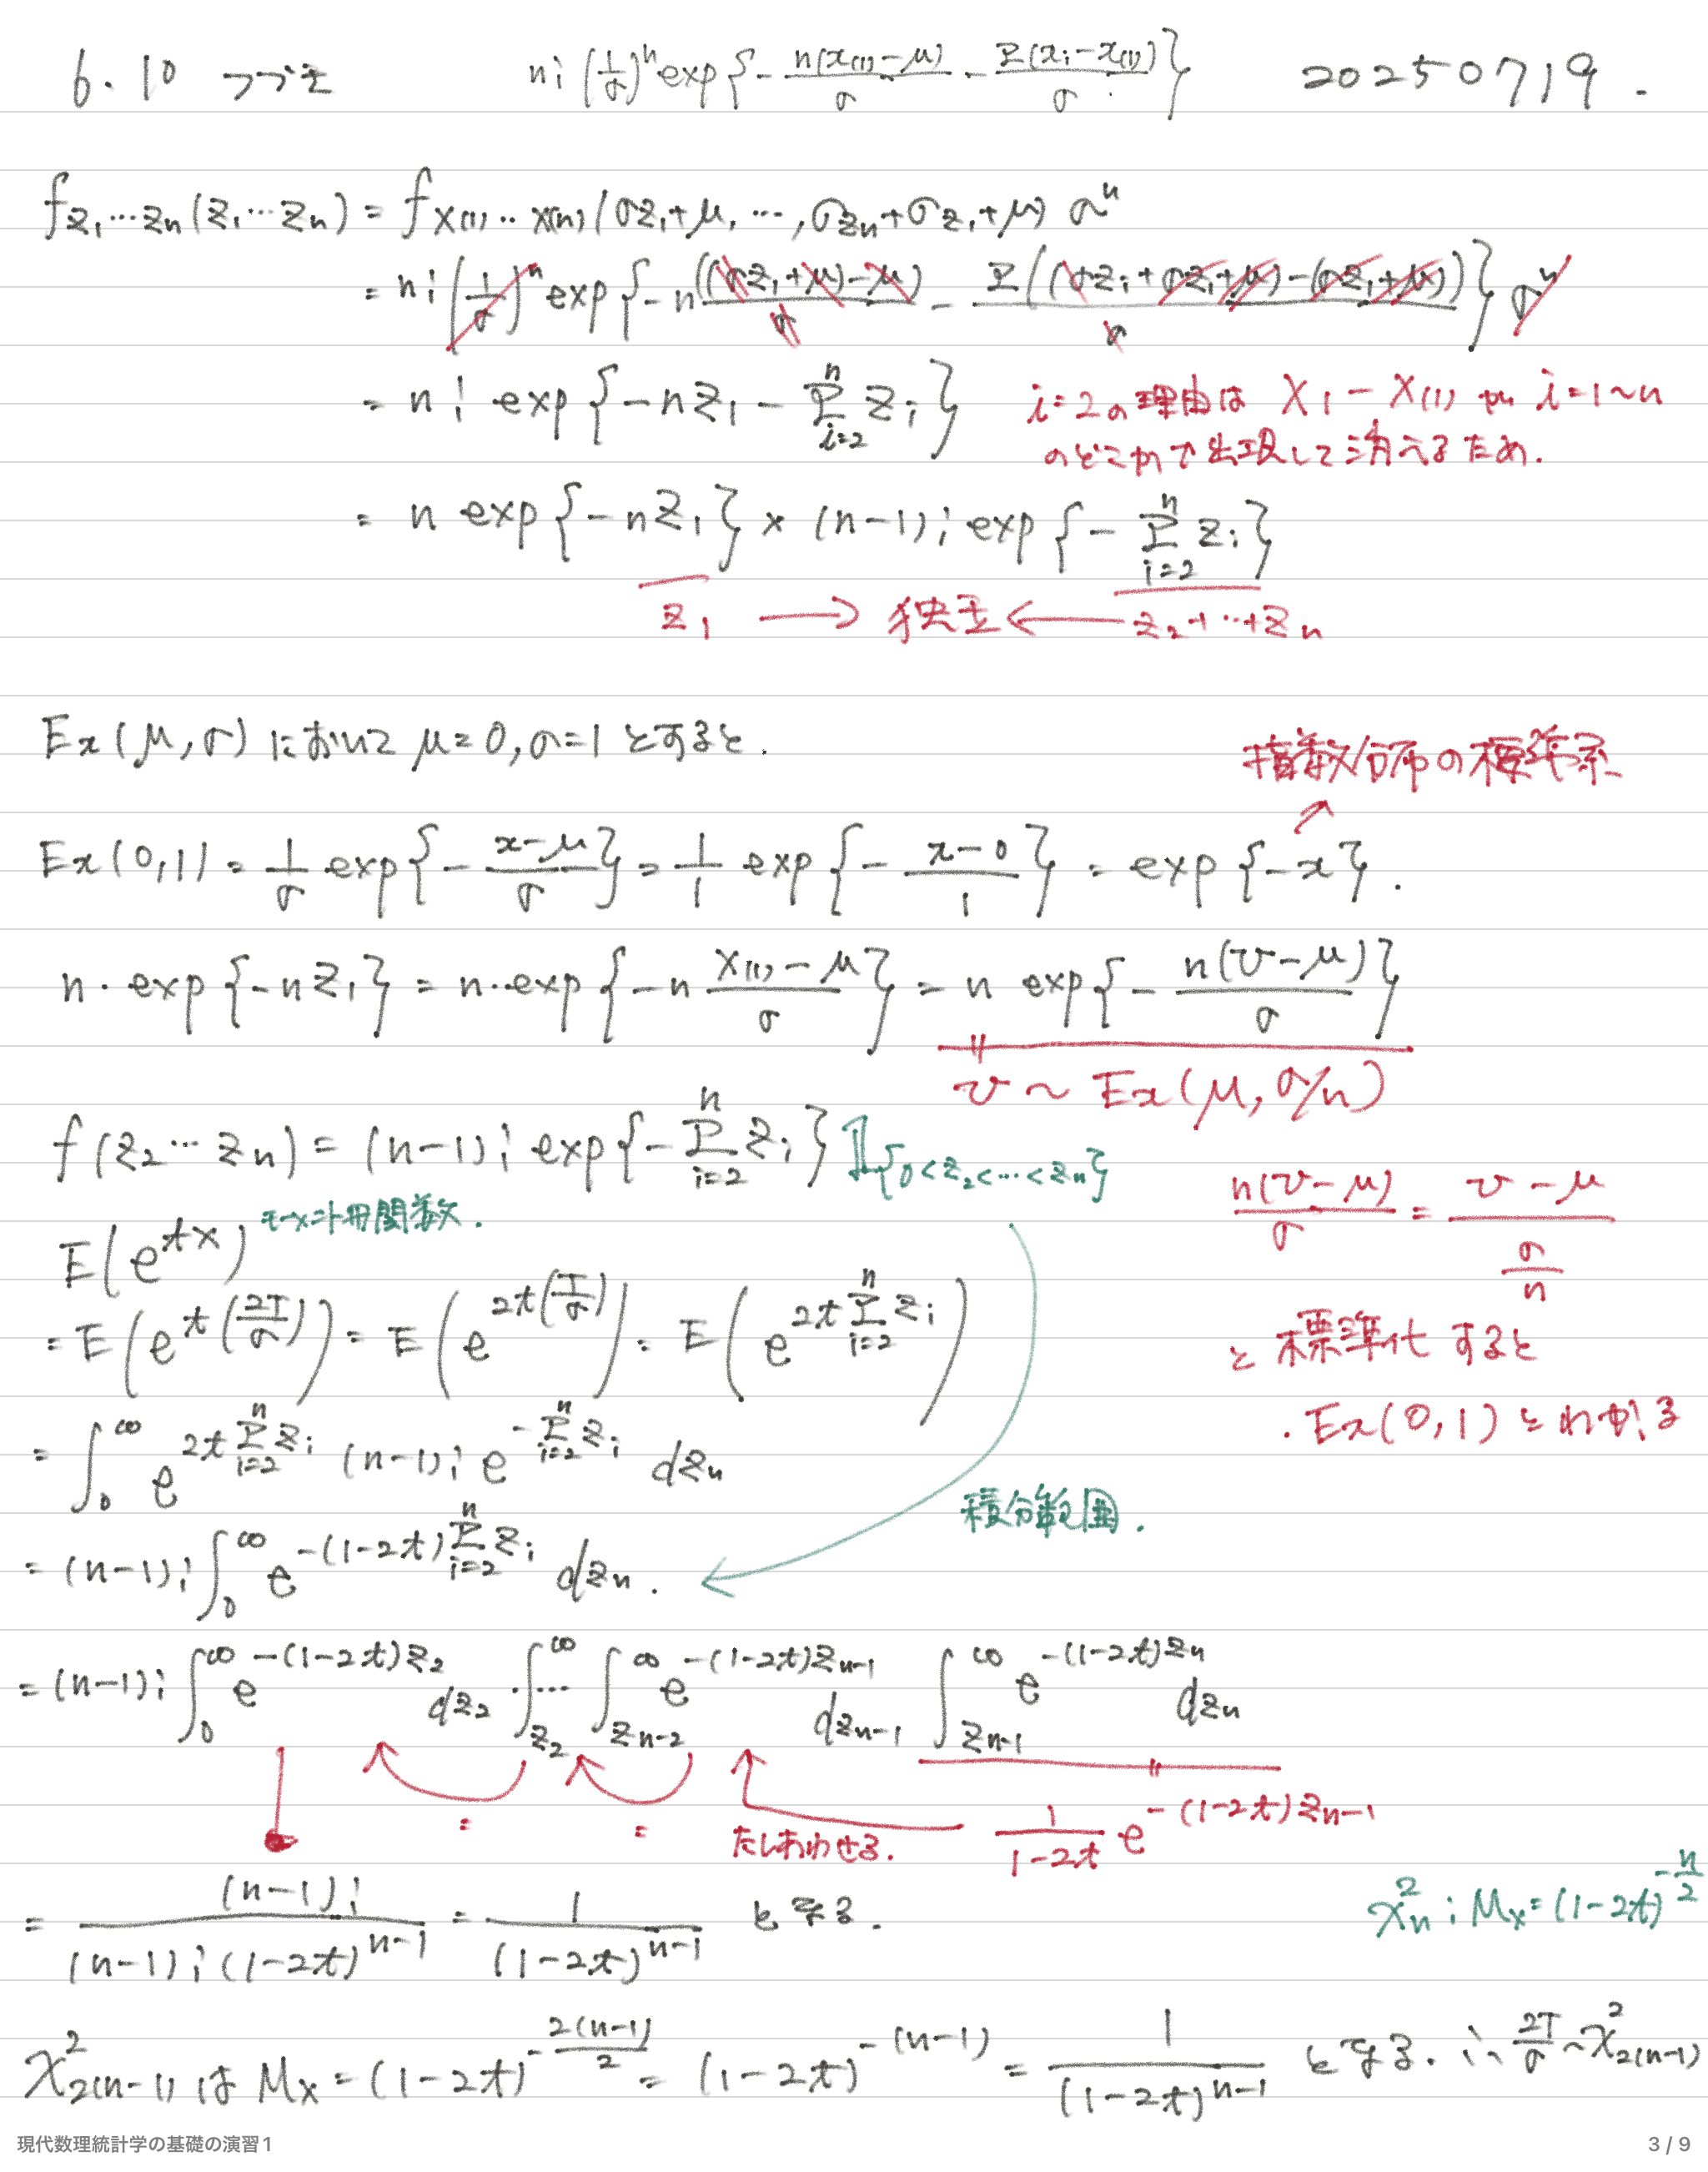 6.10 つづき n! (1/σ)^n exp{- n(x_(1)-μ)/σ - Σ(x_i-x_(1))/σ} 20250719.
f_{z_1…z_n}(z_1…z_n) = f_{X(1)…X(n)}(σz_1+μ, …, σz_n+σz_1+μ) σ^n
= n! (1/σ)^n exp{-n((σz_1+μ)-μ)/σ - Σ((σz_i+σz_1+μ)-(σz_1+μ))/σ} σ^n
= n! exp{-nz_1 - Σ_{i=2}^n z_i} i=2の理由は X_1-X_(1) が i=1~n
のどこかで出現して消えるため.
= n exp{-nz_1} × (n-1)! exp{-Σ_{i=2}^n z_i}
z_1 → 独立 ← z_2+…+z_n
Ex(μ,σ) において μ=0, σ=1 とすると.
指数分布の標準系
Ex(0,1) = 1/σ exp{- (x-μ)/σ} = 1/1 exp{- (x-0)/1} = exp{-x}.
n・exp{-nz_1} = n・exp{-n (X_(1)-μ)/σ} = n exp{- n(v-μ)/σ}
v ~ Ex(μ, σ/n)
f(z_2…z_n) = (n-1)! exp{-Σ_{i=2}^n z_i} I_{{0<z_2<…<z_n}}
n(v-μ)/σ = (v-μ)/(σ/n)
E(e^{tx}) モーメント母関数.
= E(e^{t(2T/σ)}) = E(e^{2t(T/σ)}) = E(e^{2tΣ_{i=2}^n z_i})
と 標準化 すると
. Ex(0,1) とわかる
= ∫_0^∞ e^{2tΣ_{i=2}^n z_i} (n-1)! e^{-Σ_{i=2}^n z_i} dz_n
積分範囲.
= (n-1)! ∫_0^∞ e^{-(1-2t)Σ_{i=2}^n z_i} dz_n.
= (n-1)! ∫_0^∞ e^{-(1-2t)z_2} dz_2 … ∫_{z_2}^∞ ∫_{z_{n-2}}^∞ e^{-(1-2t)z_{n-1}} dz_{n-1} ∫_{z_{n-1}}^∞ e^{-(1-2t)z_n} dz_n
= = たしあわせる. 1/(1-2t) e^{-(1-2t)z_{n-1}}
= (n-1)!/((n-1)!(1-2t)^{n-1}) = 1/(1-2t)^{n-1} となる. χ²_n : M_x = (1-2t)^{-n/2}
χ²_{2(n-1)} は M_x = (1-2t)^{-2(n-1)/2} = (1-2t)^{-(n-1)} = 1/(1-2t)^{n-1} となる. ∴ 2T/σ ~ χ²_{2(n-1)}
現代数理統計学の基礎の演習1 3 / 9